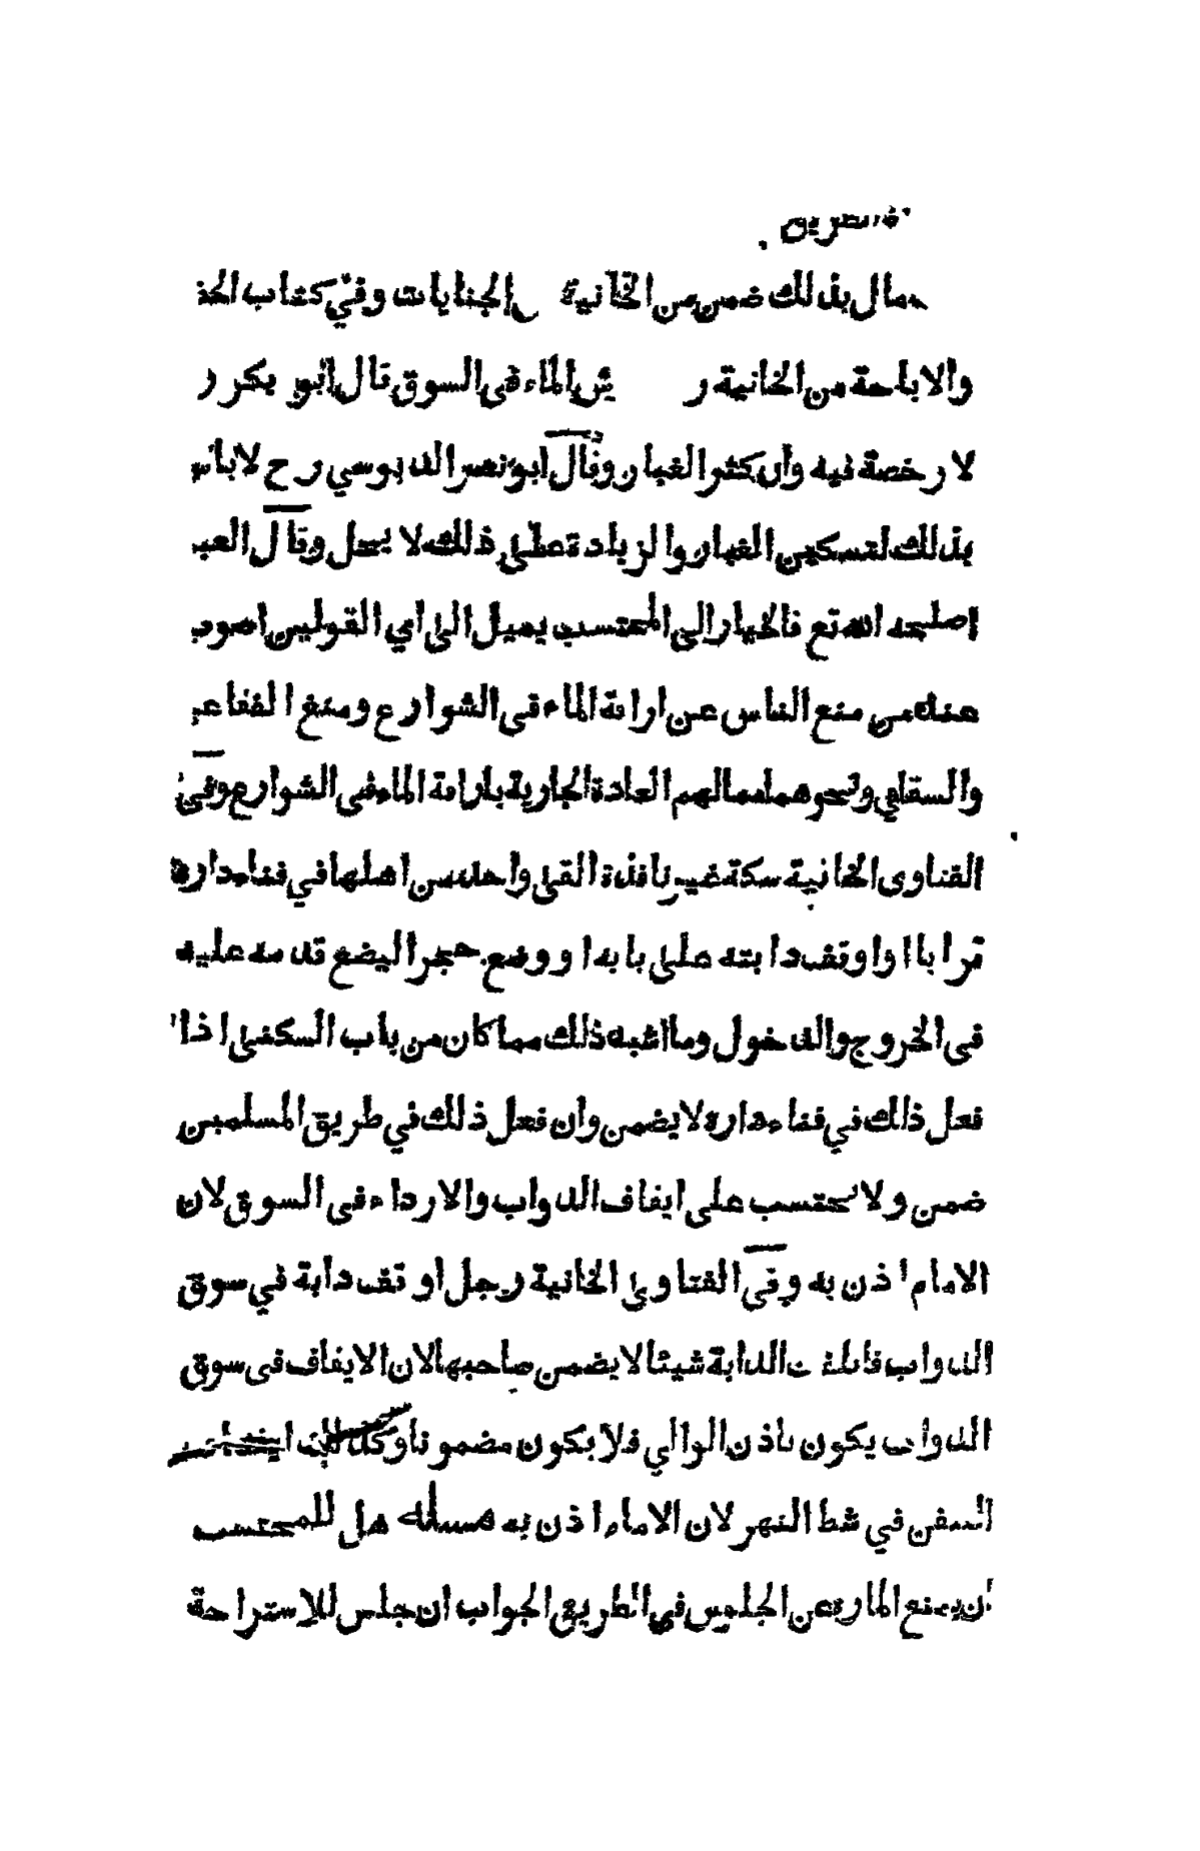 مال بذلك ضمن من الخانية الجنايات وفي كتاب الحذ
والاباحة من الخانية ر ش الماء في السوق قال ابو بكر ر
لا رخصة فيه وان كثر الغبار وقال ابو نصر الدبوسي رح لا باس
بذلك لتسكين الغبار والزيادة على ذلك لا يحل وقال العبد
اصلحه الله تع فالخيار الى المحتسب يميل الى اي القولين اصوب
عنده من منع الناس عن اراقة الماء في الشوارع ومنع الفقاعي
والسقاي ونحوهما مما لهم العادة الجارية باراقة الماء في الشوارع وفي
الفتاوى الخانية سكة غير نافذة القى واحد من اهلها في فناء داره
ترابا او اوقف دابته على بابه او وضع حجرا ليضع قدمه عليه
في الخروج والدخول وما اشبه ذلك مما كان من باب السكنى اذا
فعل ذلك في فناء داره لا يضمن وان فعل ذلك في طريق المسلمين
ضمن ولا يحتسب على ايقاف الدواب والارداء في السوق لان
الامام اذن به وفي الفتاوى الخانية رجل اوقف دابة في سوق
الدواب فاتلفت الدابة شيئا لا يضمن صاحبها لان الايقاف في سوق
الدواب يكون باذن الوالي فلا يكون مضمونا وكذلك
السفن في شط النهر لان الامام اذن به مسألة هل للمحتسب
ان يمنع المارة عن الجلوس في الطريق الجواب ان جلس للاستراحة